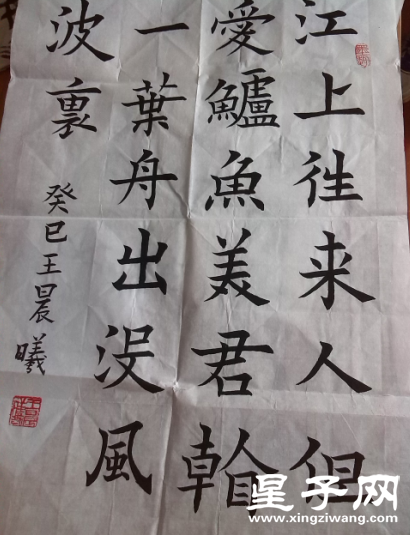 江上徃来人但
愛鱸魚美君
一葉舟出没風
波裏
癸巳王晨曦
星子网
www.xingziwang.com